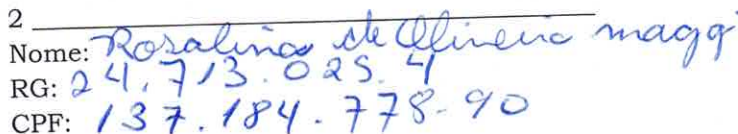 2
Nome: Rosalina de Oliveira maggi
RG: 24.713.025.4
CPF: 137.184.778-90